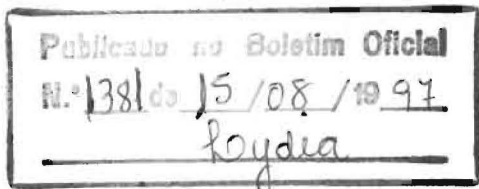 Publicado no Boletim Oficial
N.º 138 de 15 / 08 / 19 97
Lydia